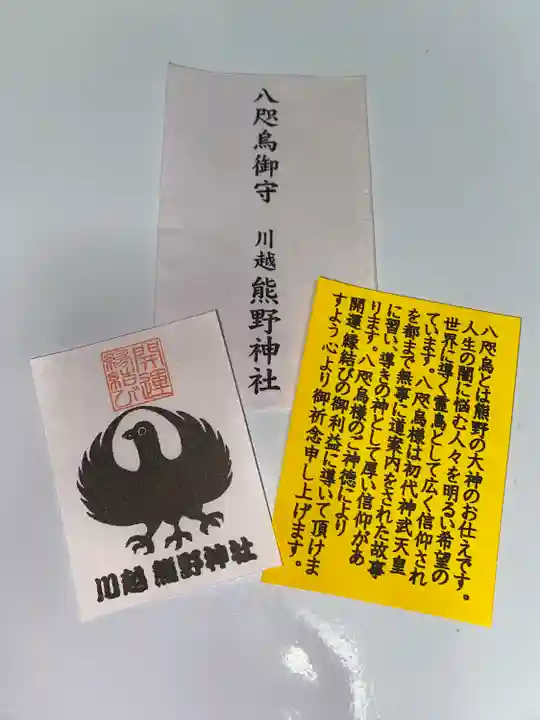 八咫烏御守　川越熊野神社
開運
縁結び
川越 熊野神社
八咫烏とは熊野の大神のお仕えです。
人生の闇に悩む人々を明るい希望の
世界に導く霊鳥として広く信仰され
ています。八咫烏様は初代神武天皇
を都まで無事に道案内をされた故事
に習い、導きの神として厚い信仰があ
ります。八咫烏様のご神徳により
開運・縁結びの御利益に導いて頂けま
すよう心より御祈念申し上げます。